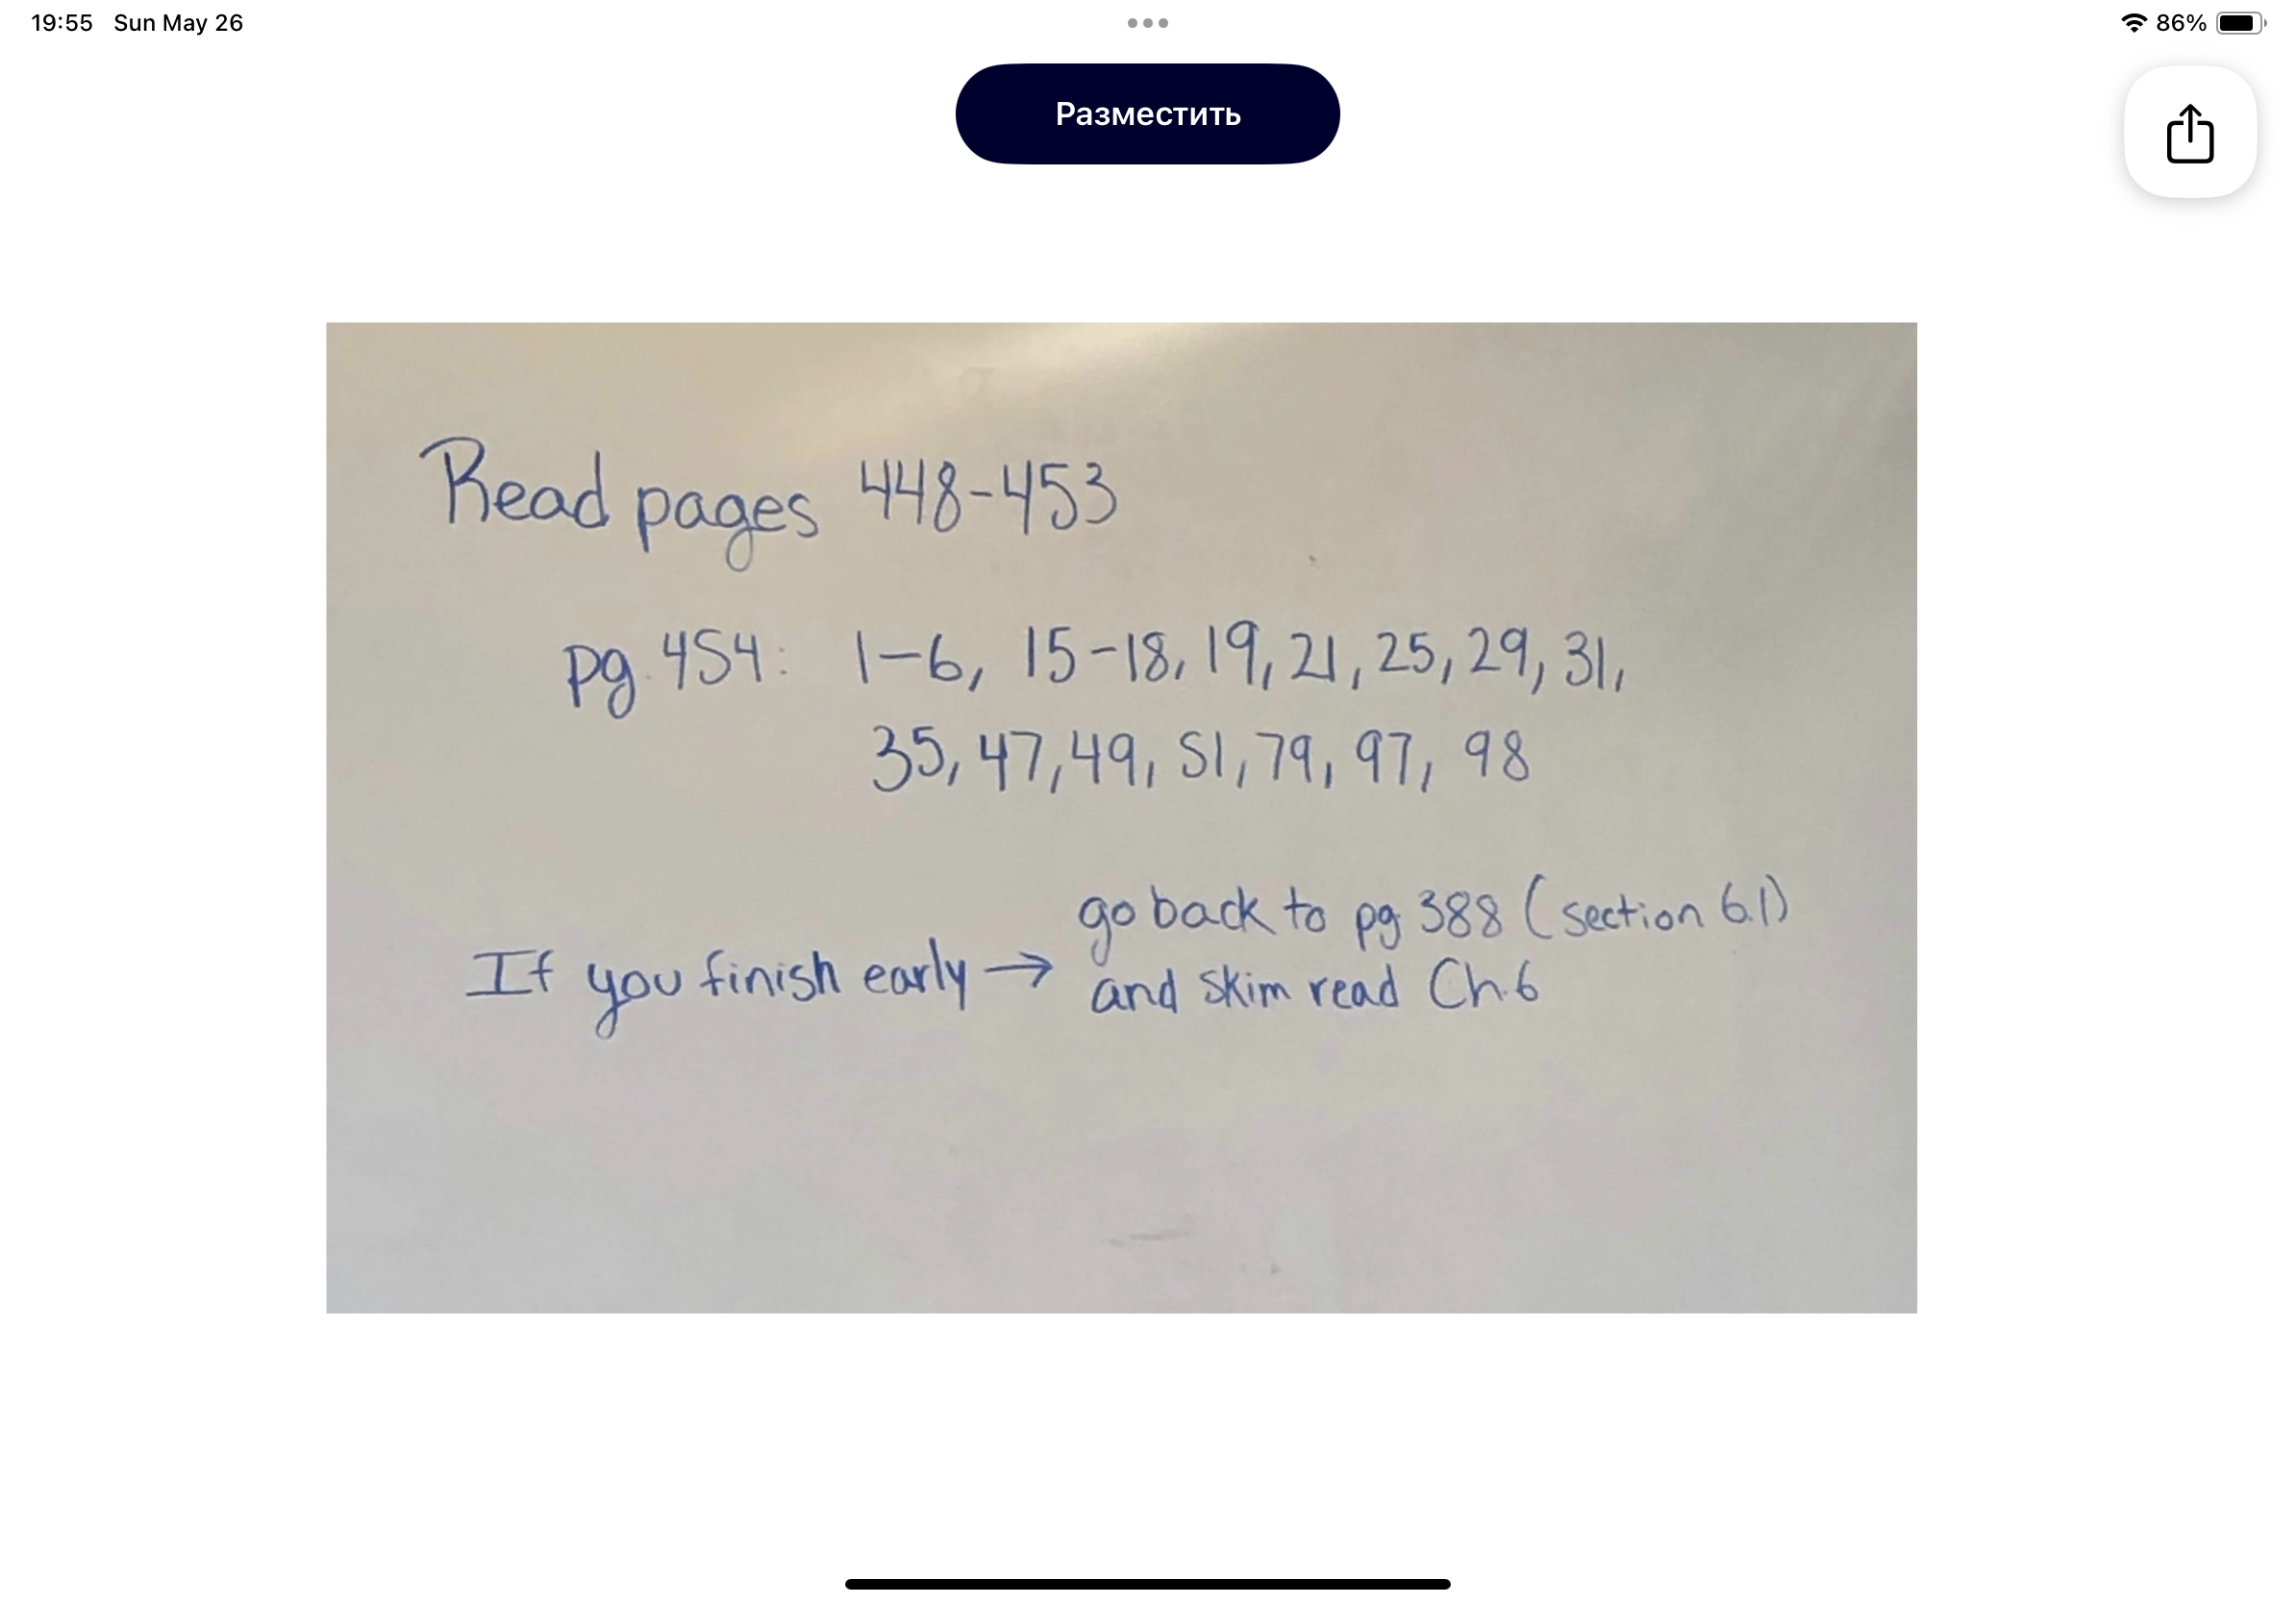 19:55 Sun May 26
86%
Разместить
Read pages 448-453
pg. 454: 1-6, 15-18, 19, 21, 25, 29, 31,
35, 47, 49, 51, 79, 97, 98
If you finish early → go back to pg 388 (section 6.1)
and skim read Ch. 6